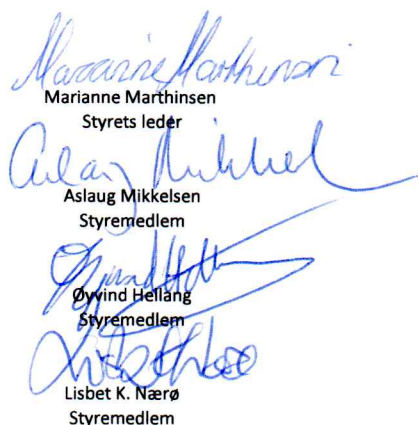 Marianne Marthinsen
Marianne Marthinsen
Styrets leder
Aslaug Mikkel
Aslaug Mikkelsen
Styremedlem
Øyvind Hellang
Styremedlem
Lisbet K. Nærø
Styremedlem